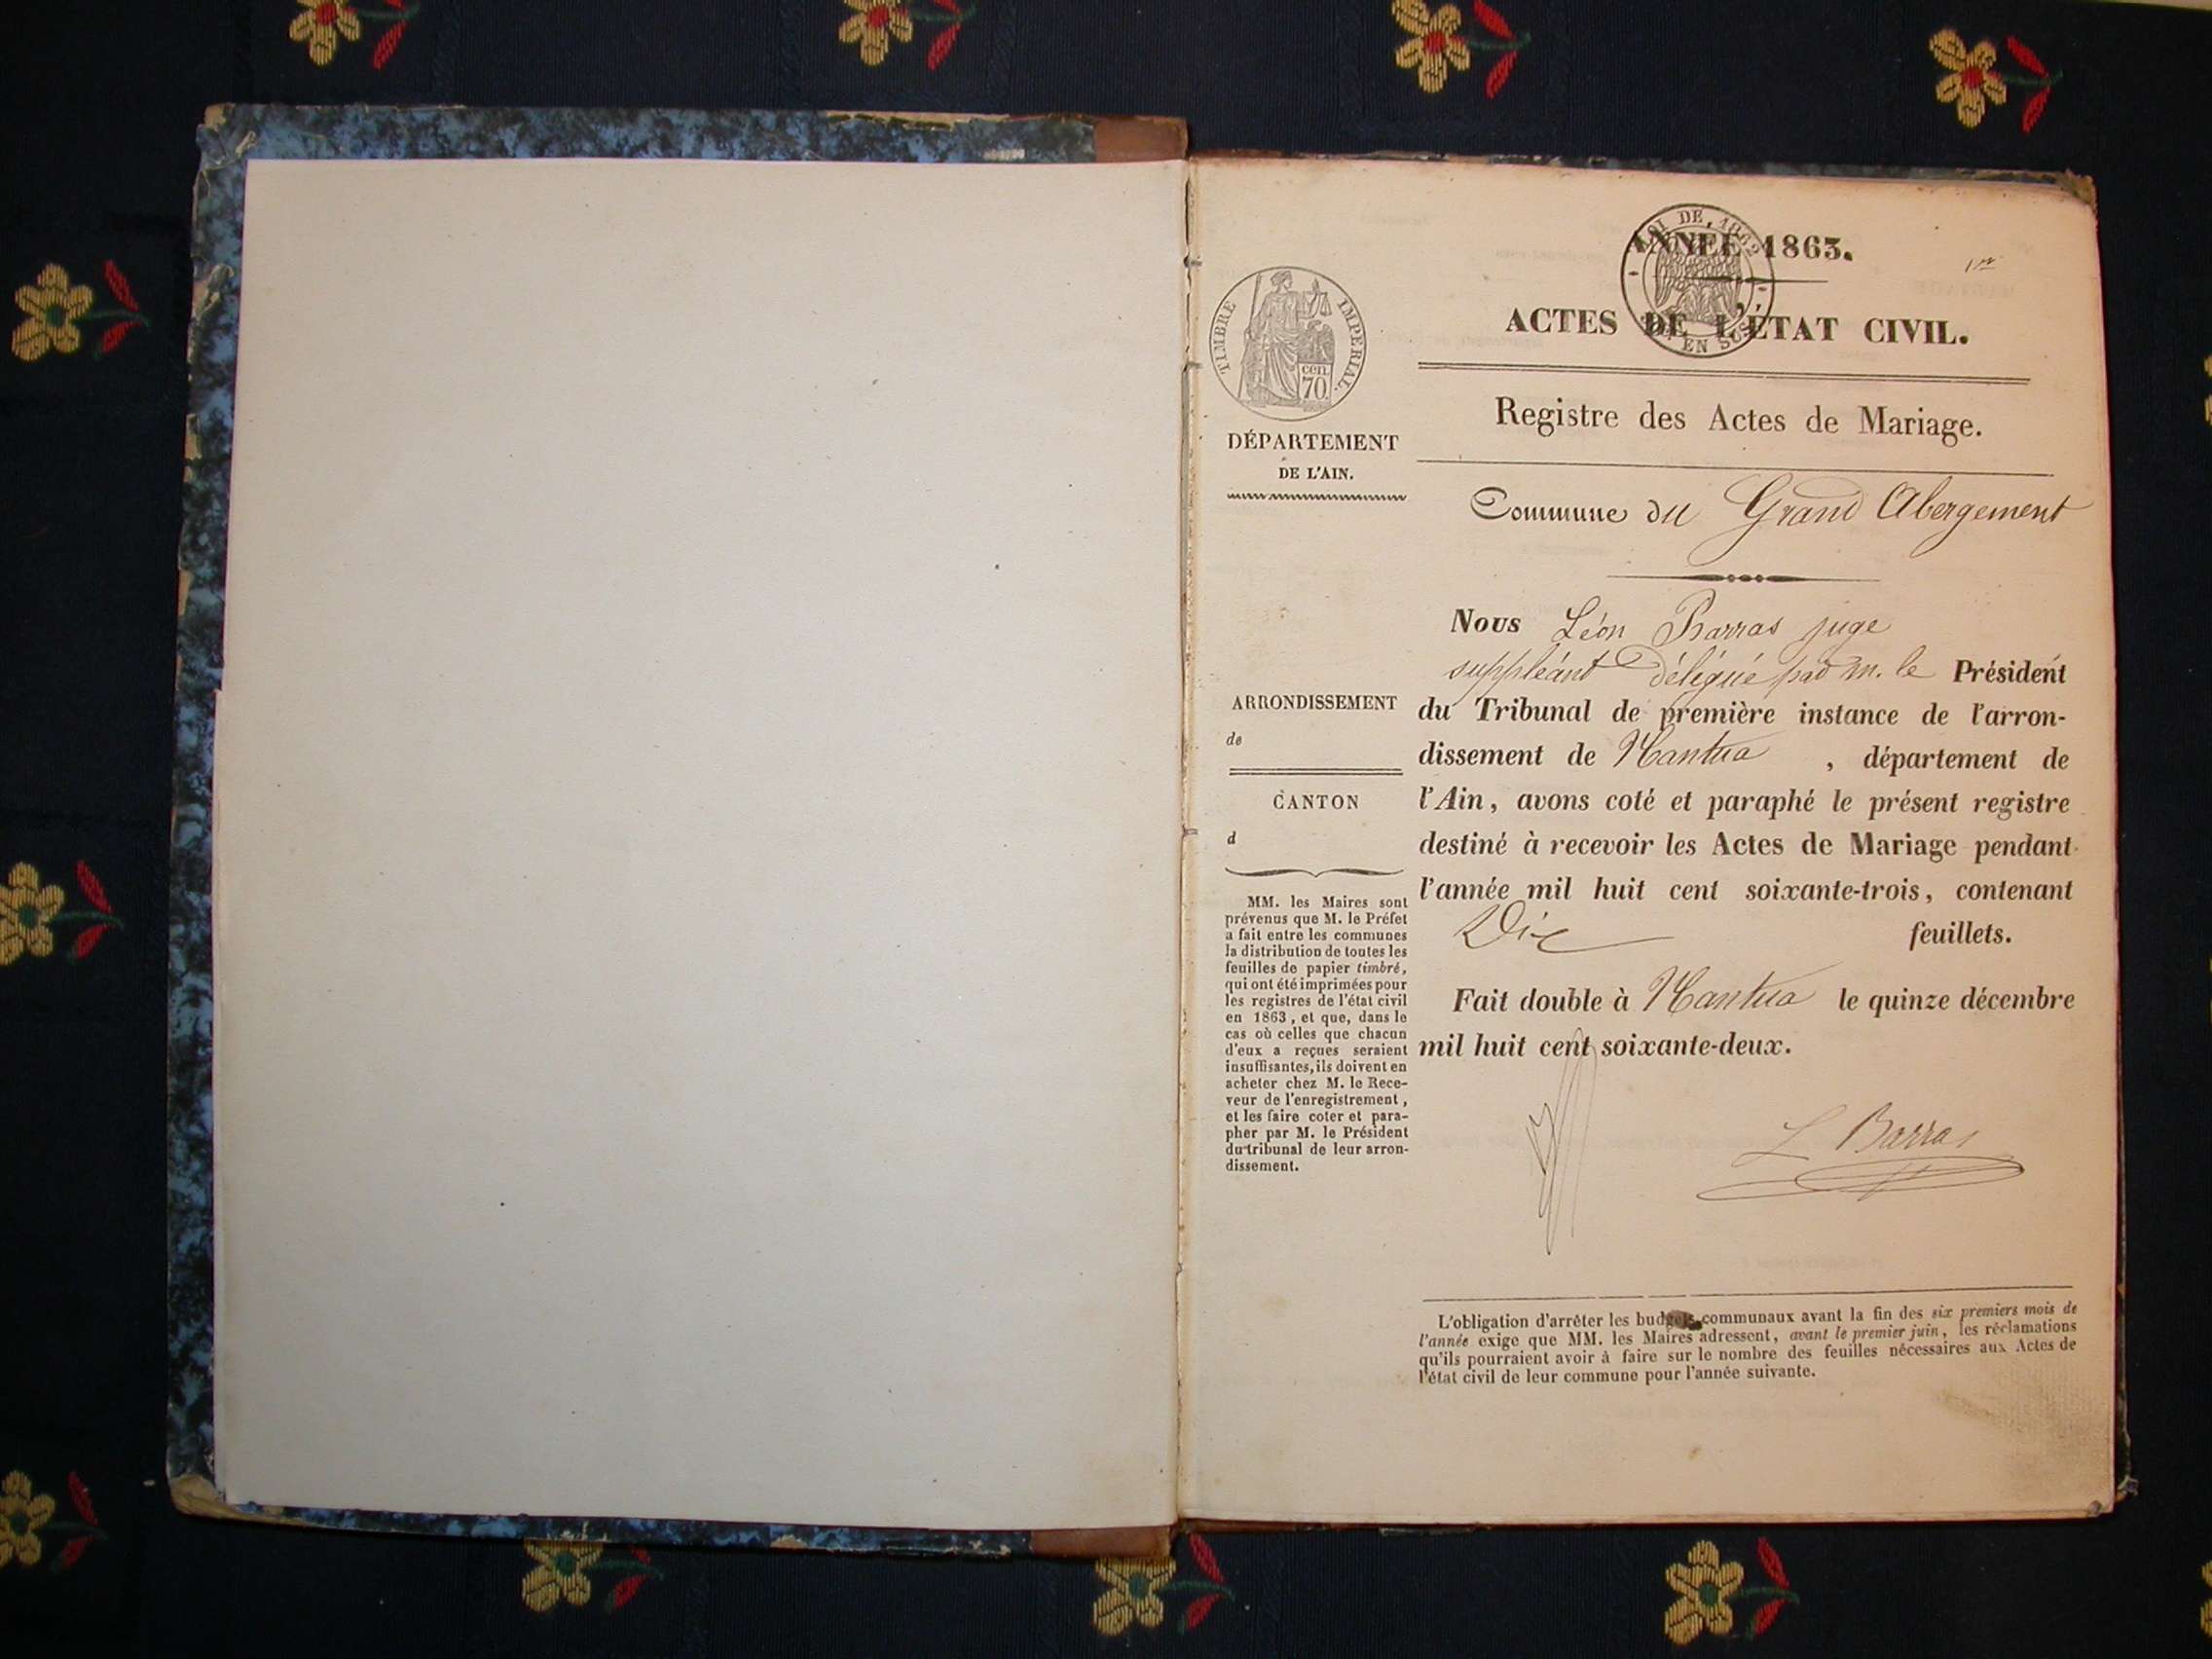 LOI DE 1862
EN SUS
ANNÉE 1863.
1er
ACTES DE L'ÉTAT CIVIL.
Registre des Actes de Mariage.
Commune du Grand Abergement
TIMBRE IMPERIAL.
cen.
70.
DÉPARTEMENT
DE L'AIN.
ARRONDISSEMENT
de
CANTON
d
MM. les Maires sont
prévenus que M. le Préfet
a fait entre les communes
la distribution de toutes les
feuilles de papier timbré,
qui ont été imprimées pour
les registres de l'état civil
en 1863, et que, dans le
cas où celles que chacun
d'eux a reçues seraient
insuffisantes, ils doivent en
acheter chez M. le Rece-
veur de l'enregistrement,
et les faire coter et para-
pher par M. le Président
du tribunal de leur arron-
dissement.
Nous Léon Barras juge
suppléant délégué par m. le Président
du Tribunal de première instance de l'arron-
dissement de Nantua , département de
l'Ain, avons coté et paraphé le présent registre
destiné à recevoir les Actes de Mariage pendant
l'année mil huit cent soixante-trois, contenant
Dix feuillets.
Fait double à Nantua le quinze décembre
mil huit cent soixante-deux.
L Barras
L'obligation d'arrêter les budgets communaux avant la fin des six premiers mois de
l'année exige que MM. les Maires adressent, avant le premier juin, les réclamations
qu'ils pourraient avoir à faire sur le nombre des feuilles nécessaires aux Actes de
l'état civil de leur commune pour l'année suivante.